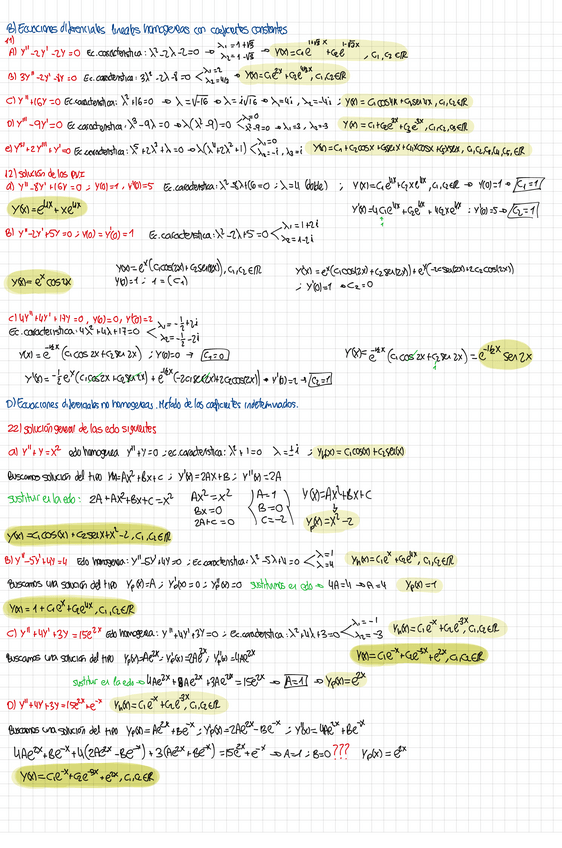 B) Ecuaciones diferenciales lineales homogeneas con coeficientes constantes
11)
A) y''-2y'-2y=0 Ec. característica: λ²-2λ-2=0 → λ₁=1+√3 λ₂=1-√3 → y(x)=c₁e^(1+√3 x)+c₂e^(1-√3 x), c₁,c₂∈ℝ
B) 3y''-2y'-8y=0 Ec. característica: 3λ²-2λ-8=0 λ₁=2 λ₂=4/3 → y(x)=c₁e^2x+c₂e^4/3x, c₁,c₂∈ℝ
C) y''+16y=0 Ec característica: λ²+16=0 → λ=√-16 → λ=i√16 → λ₁=4i, λ₂=-4i ; y(x)=c₁cos4x+c₂sen4x, c₁,c₂∈ℝ
D) y'''-9y'=0 Ec. característica: λ³-9λ=0 → λ(λ²-9)=0 λ=0 λ²-9=0 → λ₁=3, λ₂=-3 y(x)=c₁+c₂e^3x+c₃e^-3x, c₁,c₂,c₃∈ℝ
e) y^v+2y'''+y'=0 Ec característica: λ⁵+2λ³+λ=0 → λ(λ⁴+2λ²+1) λ₁=0 λ₂=-i, λ₃=i y(x)=c₁+c₂cosx+c₃senx+c₄xcosx+c₅xsenx, c₁,c₂,c₃,c₄,c₅∈ℝ
12) solución de los PVI
a) y''-8y'+16y=0 ; y(0)=1, y'(0)=5 Ec. característica: λ²-8λ+16=0 ; λ=4 (doble) ; y(x)=c₁e^4x+c₂xe^4x, c₁,c₂∈ℝ → y(0)=1 → c₁=1
y(x)=e^4x+xe^4x y'(x)=4c₁e^4x+c₂e^4x+4c₂xe^4x ; y'(0)=5 → c₂=1
B) y''-2y'+5y=0 ; y(0)=y'(0)=1 Ec.característica: λ²-2λ+5=0 λ₁=1+2i λ₂=1-2i
y(x)=e^x(c₁cos(2x)+c₂sen(2x)), c₁,c₂∈ℝ y'(x)=e^x(c₁cos(2x)+c₂sen(2x))+e^x(-2c₁sen(2x)+2c₂cos(2x))
y(x)=e^x cos2x y(0)=1 ; 1=(c₁) ; y'(0)=1 → c₂=0
c) 4y''+4y'+17y=0, y(0)=0, y'(0)=2
Ec. característica: 4λ²+4λ+17=0 λ₁=-1/2+2i λ₂=-1/2-2i
y(x)=e^-1/2x(c₁cos2x+c₂sen2x) ; y(0)=0 → c₁=0 y(x)=e^-1/2x(c₁cos2x+c₂sen2x)=e^-1/2x sen2x
y'(x)=-1/2e^x(c₁cos2x+c₂sen2x)+e^-1/2x(-2c₁sen2x+2c₂cos(2x)) → y'(0)=2 → c₂=1
D) Ecuaciones diferenciales no homogeneas. Metodo de los coeficientes indeterminados.
22) solución general de las edo siguientes
a) y''+y=x² edo homogenea y''+y=0 ; ec.característica: λ²+1=0 λ=±i ; yₕ(x)=c₁cos(x)+c₂sen(x)
Buscamos solución del tipo y(x)=Ax²+Bx+c ; y'(x)=2Ax+B ; y''(x)=2A
sustituir en la edo : 2A+Ax²+Bx+c=x² Ax²=x² A=1 y(x)=Ax²+Bx+c
Bx=0 B=0
2A+c=0 c=-2 yₚ(x)=x²-2
y(x)=c₁cos(x)+c₂senx+x²-2, c₁,c₂∈ℝ
B) y''-5y'+4y=4 Edo homogenea: y''-5y'+4y=0 ; ec característica: λ²-5λ+4=0 λ=1 λ=4 yₕ(x)=c₁e^x+c₂e^4x, c₁,c₂∈ℝ
Buscamos una solución del tipo yₚ(x)=A ; y'ₚ(x)=0 ; y''ₚ(x)=0 sustituimos en edo → 4A=4 → A=4 yₚ(x)=1
y(x)=1+c₁e^x+c₂e^4x, c₁,c₂∈ℝ
C) y''+4y'+3y=15e^2x edo homogenea: y''+4y'+3y=0 ; ec.característica: λ²+4λ+3=0 λ=-1 λ=-3 yₕ(x)=c₁e^-x+c₂e^-3x, c₁,c₂∈ℝ
Buscamos una solución del tipo yₚ(x)=Ae^2x y'ₚ(x)=2Ae^2x ; y''ₚ(x)=4Ae^2x y(x)=c₁e^-x+c₂e^-3x+e^2x, c₁,c₂∈ℝ
sustituir en la edo → 4Ae^2x+8Ae^2x+3Ae^2x=15e^2x → A=1 → yₚ(x)=e^2x
D) y''+4y+3y=15e^2x+e^-x yₕ(x)=c₁e^-x+c₂e^-3x
Buscamos una solución del tipo yₚ(x)=Ae^2x+Be^-x ; y'ₚ(x)=2Ae^2x-Be^-x ; y''(x)=4Ae^2x+Be^-x
4Ae^2x+Be^-x+4(2Ae^2x-Be^-x)+3(Ae^2x+Be^-x)=15e^2x+e^-x → A=1 ; B=0 ??? yₚ(x)=e^2x
y(x)=c₁e^-x+c₂e^-3x+e^2x, c₁,c₂∈ℝ